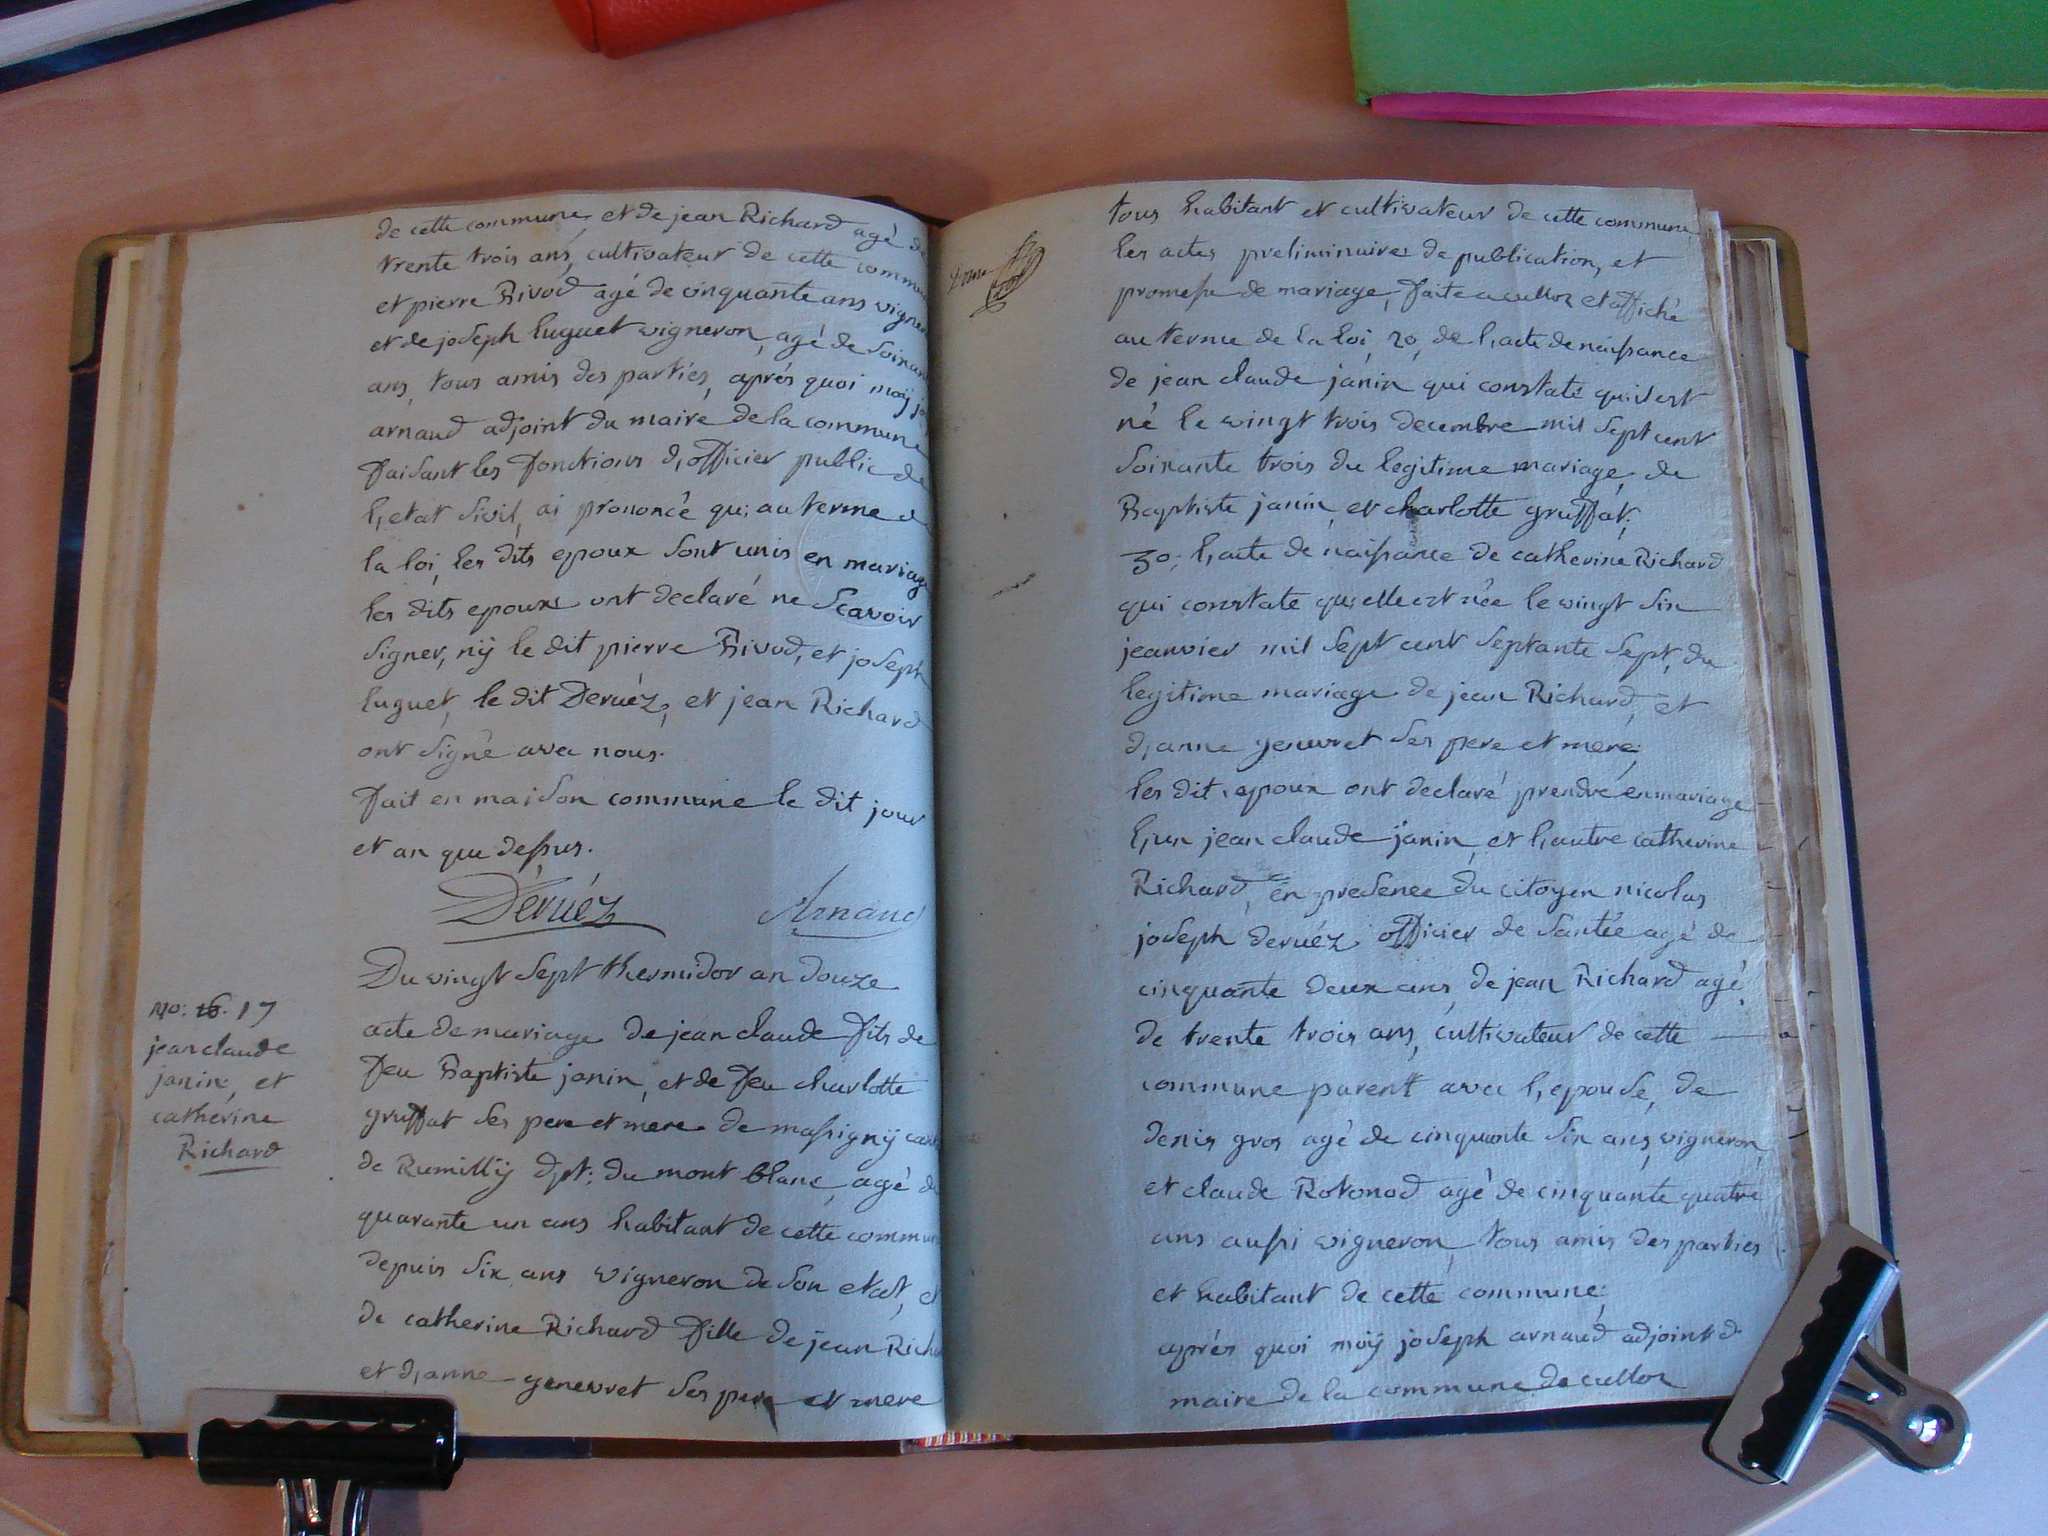 de cette commune, et de jean Richard agé de
trente trois ans, cultivateur de cette commune
et pierre Rivod agé de cinquante ans vigneron
et de joseph luguet vigneron, agé de soixante
ans, tous amis des parties, aprés quoi moÿ
arnaud adjoint du maire de la commune
faisant les fonctions d,officier public de
l,etat sivil, ai prononcé qu; au terme de
la loi, les dits epoux sont unis en mariage
les dits epoux ont declaré ne scavoir
signer, nÿ le dit pierre Rivod, et joseph
luguet, le dit Deruéz, et jean Richard
ont signé avec nous.
fait en maison commune le dit jour
et an que dessus.
Déruéz Arnaud
Du vingt sept thermidor an douze
No: 16. 17
jean claude
janin, et
catherine
Richard
acte de mariage de jean claude fils de
feu Baptiste janin, et de feu charlotte
gruffat ses pere et mere de massignÿ
de Rumillÿ dpt: du mont blanc, agé de
quarante un ans habitant de cette commune
depuis six ans vigneron de son etat, et
de catherine Richard fille de jean Richard
et d,anne genevret ses pere et mere
tous habitant et cultivateur de cette commune
les actes preliminaires de publication, et
promesse de mariage, faite a culloz et affiché
au terme de la loi, 20, de l,acte de naissance
de jean claude janin qui constate qu;il est
né le vingt trois decembre mil sept cent
soixante trois du legitime mariage, de
Baptiste janin, et charlotte gruffat;
30; l,acte de naissance de catherine Richard
qui constate qu;elle est née le vingt six
jeanvier mil sept cent septante sept, du
legitime mariage de jean Richard, et
d,anne genevret ses pere et mere;
les dit, epoux ont declaré prendre en mariage
l,un jean claude janin, et l,autre catherine
Richard, en presence du citoyen nicolas
joseph deruéz officier de santée agé de
cinquante deux ans, de jean Richard agé
de trente trois ans, cultivateur de cette
commune parent avec l,epouse, de
denis gros agé de cinquante six ans, vigneron,
et claude Rotonod agé de cinquante quatre
ans aussi vigneron, tous amis des parties
et habitant de cette commune;
aprés quoi moÿ joseph arnaud adjoint d
maire de la commune de culloz